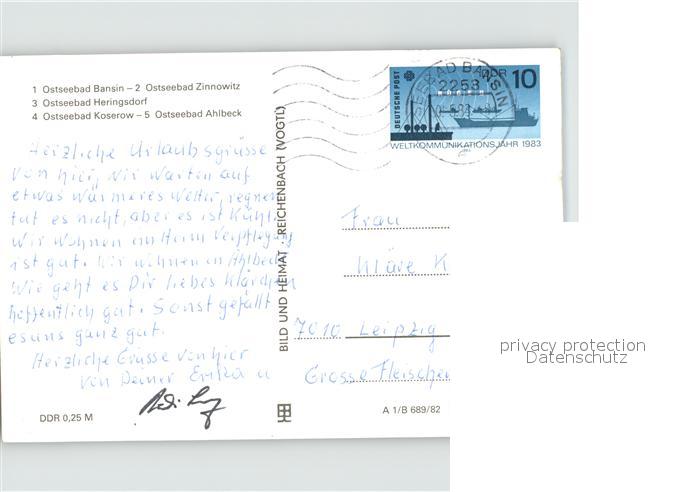 1 Ostseebad Bansin – 2 Ostseebad Zinnowitz
3 Ostseebad Heringsdorf
4 Ostseebad Koserow – 5 Ostseebad Ahlbeck
Herzliche Urlaubsgrüsse
von hier, wir warten auf
etwas wärmeres Wetter, regnen
tut es nicht, aber es ist Kühl.
Wir wohnen im Heim Verpflegung
ist gut. Wir wohnen in Ahlbeck
Wie geht es Dir liebes Klärchen
hoffentlich gut. Sonst gefällt
es uns ganz gut.
Herzliche Grüsse von hier
von Deiner Erika u
DDR 0,25 M
BILD UND HEIMAT · REICHENBACH (VOGTL)
DEUTSCHE POST
DDR 10
WELTKOMMUNIKATIONSJAHR 1983
BAD BANSIN
2253
Frau
Kläre K
7010 Leipzig
Grosse Fleischer
A 1/B 689/82
privacy protection
Datenschutz